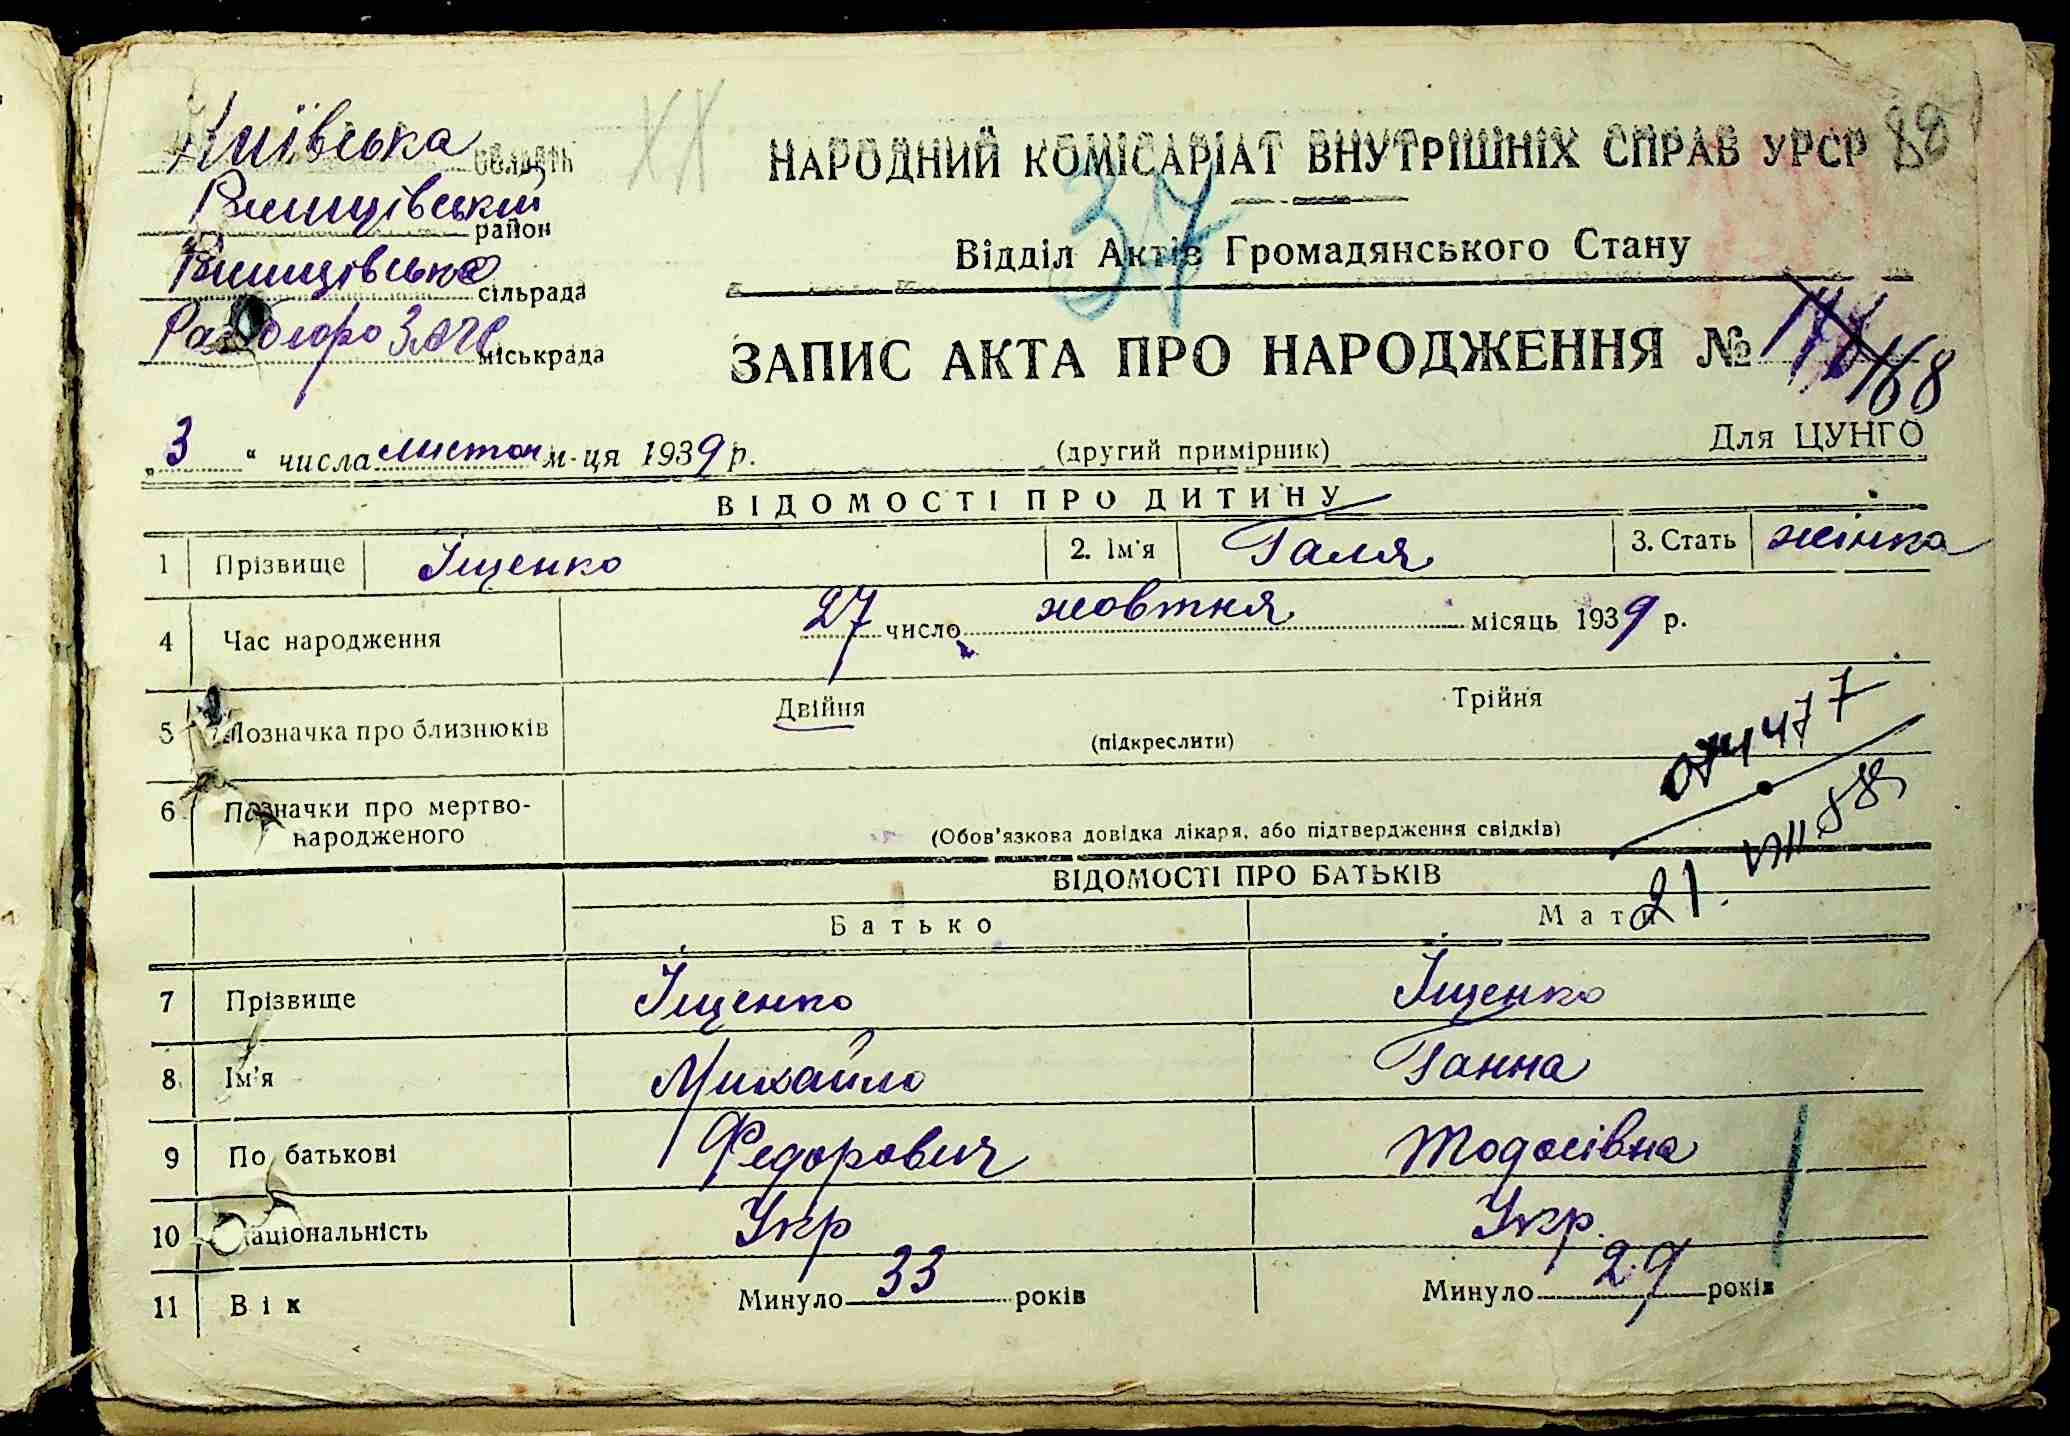 Київська область
88
НАРОДНИЙ КОМІСАРІАТ ВНУТРІШНІХ СПРАВ УРСР
37
район
Відділ Актів Громадянського Стану
сільрада
міськрада
ЗАПИС АКТА ПРО НАРОДЖЕННЯ № 168
„3" числа листоп м-ця 1939 р.
(другий примірник)
Для ЦУНГО
ВІДОМОСТІ ПРО ДИТИНУ
1 Прізвище Іщенко 2. Ім'я Галя 3. Стать жінка
4 Час народження 27 число жовтня місяць 1939 р.
5 Позначка про близнюків Двійня Трійня
(підкреслити)
6 Позначки про мертво-
народженого
(Обов'язкова довідка лікаря, або підтвердження свідків)
21. VIII 88
ВІДОМОСТІ ПРО БАТЬКІВ
Батько Мати
7 Прізвище Іщенко Іщенко
8 Ім'я Михайло Ганна
9 По батькові Федорович Тодосівна
10 Національність Укр Укр.
11 Вік Минуло 33 років Минуло 29 років